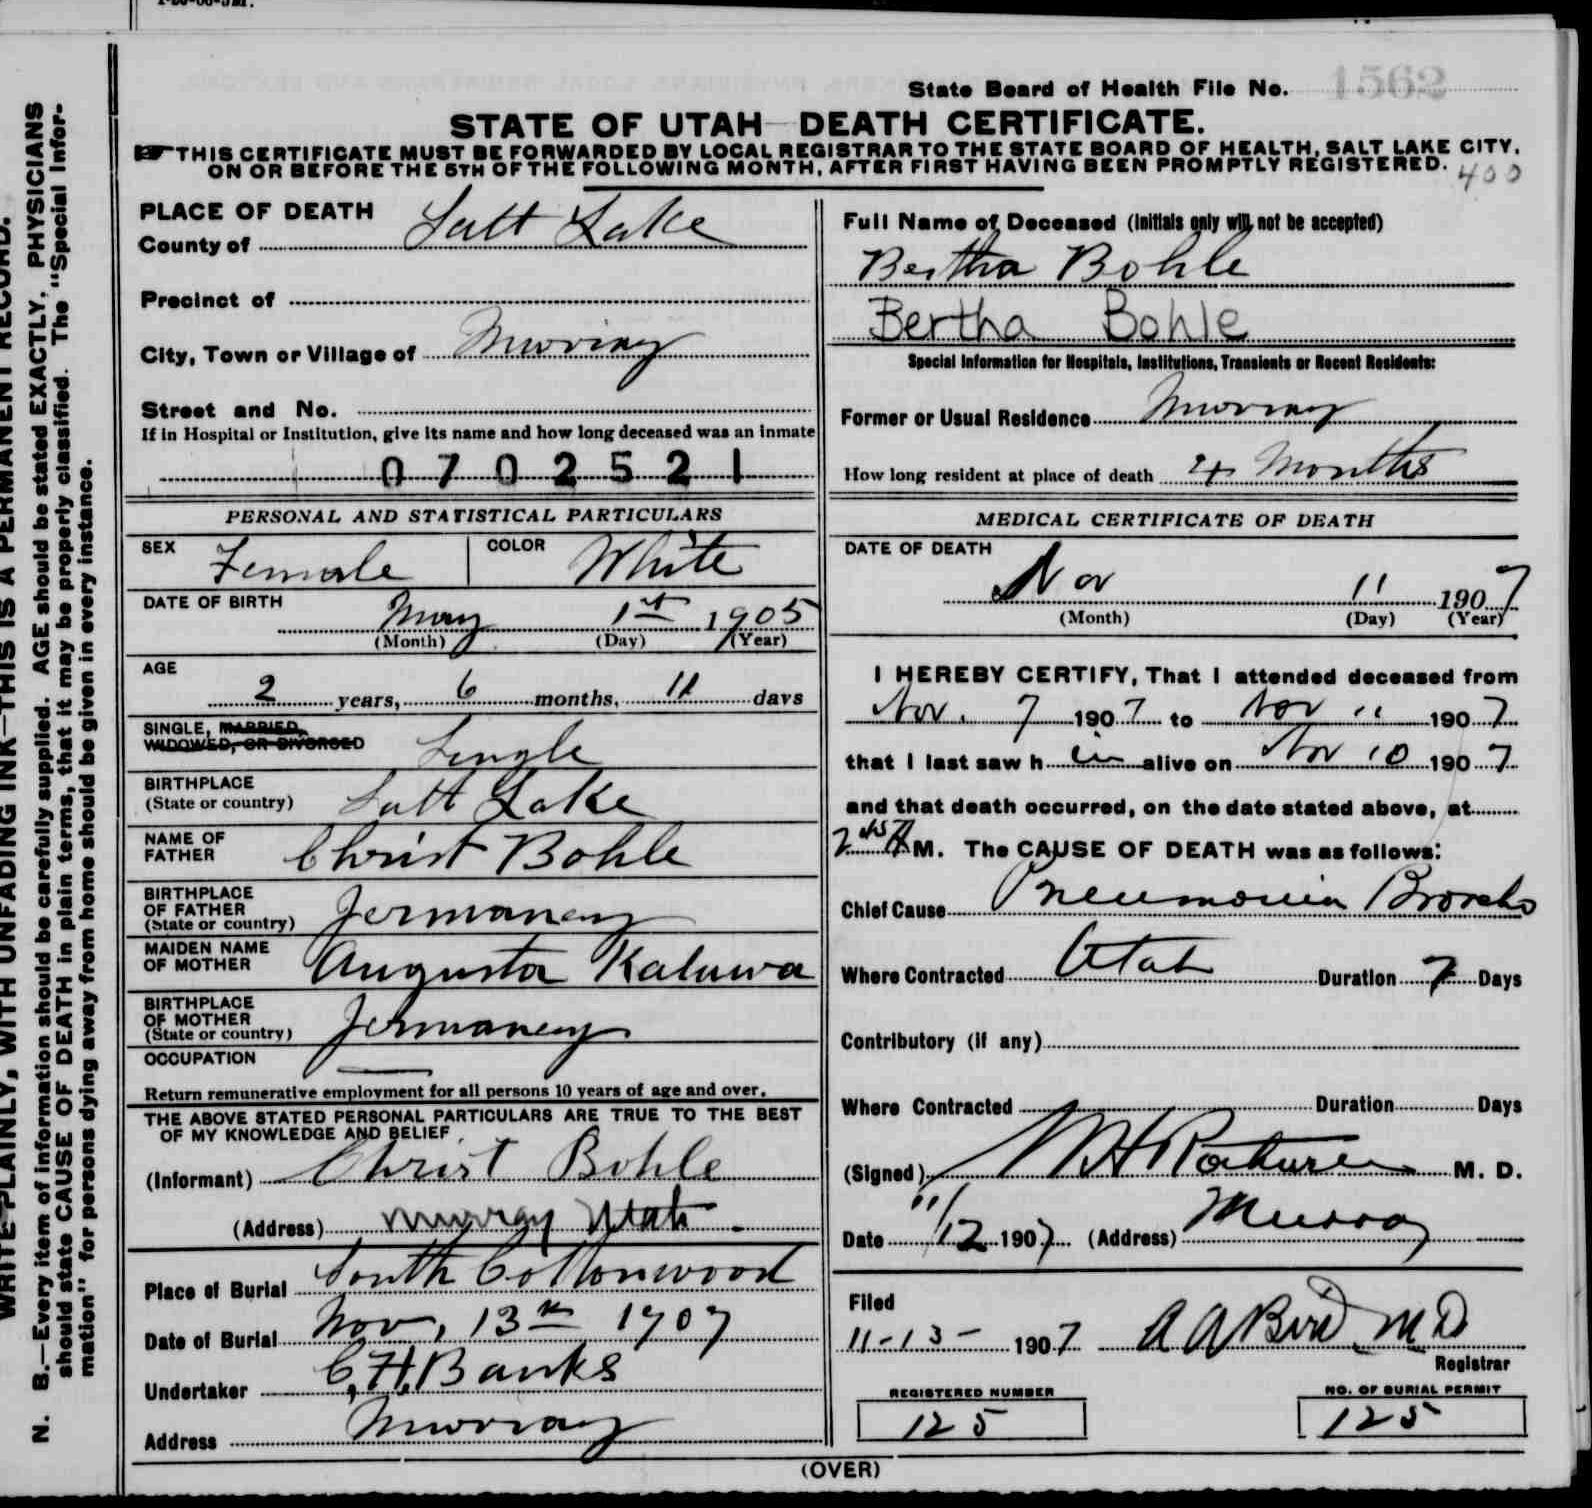 State Board of Health File No. 1562
STATE OF UTAH—DEATH CERTIFICATE.
THIS CERTIFICATE MUST BE FORWARDED BY LOCAL REGISTRAR TO THE STATE BOARD OF HEALTH, SALT LAKE CITY,
ON OR BEFORE THE 5TH OF THE FOLLOWING MONTH, AFTER FIRST HAVING BEEN PROMPTLY REGISTERED.
400
WRITE PLAINLY, WITH UNFADING INK—THIS IS A PERMANENT RECORD.
N. B.—Every item of information should be carefully supplied. AGE should be stated EXACTLY. PHYSICIANS
should state CAUSE OF DEATH in plain terms, that it may be properly classified. The "Special Infor-
mation" for persons dying away from home should be given in every instance.
PLACE OF DEATH
County of Salt Lake
Precinct of
City, Town or Village of Murray
Street and No.
If in Hospital or Institution, give its name and how long deceased was an inmate
0702521
PERSONAL AND STATISTICAL PARTICULARS
SEX Female COLOR White
DATE OF BIRTH May 1st 1905
(Month) (Day) (Year)
AGE
2 years, 6 months, 11 days
SINGLE, MARRIED,
WIDOWED, OR DIVORCED Single
BIRTHPLACE
(State or country) Salt Lake
NAME OF
FATHER Christ Bohle
BIRTHPLACE
OF FATHER
(State or country) Jermaney
MAIDEN NAME
OF MOTHER Augusta Kaluwa
BIRTHPLACE
OF MOTHER
(State or country) Jermaney
OCCUPATION —
Return remunerative employment for all persons 10 years of age and over.
THE ABOVE STATED PERSONAL PARTICULARS ARE TRUE TO THE BEST
OF MY KNOWLEDGE AND BELIEF.
(Informant) Christ Bohle
(Address) Murray Utah.
Place of Burial South Cottonwood
Date of Burial Nov, 13th 1907
Undertaker C, H, Banks
Address Murray
Full Name of Deceased (Initials only will not be accepted)
Bertha Bohle
Bertha Bohle
Special Information for Hospitals, Institutions, Transients or Recent Residents:
Former or Usual Residence Murray
How long resident at place of death 4 Months
MEDICAL CERTIFICATE OF DEATH
DATE OF DEATH
Nov 11 1907
(Month) (Day) (Year)
I HEREBY CERTIFY, That I attended deceased from
Nov. 7 1907 to Nov 11 1907
that I last saw h im alive on Nov 10 1907
and that death occurred, on the date stated above, at
2 45 A M. The CAUSE OF DEATH was as follows:
Chief Cause Pneumonia Broncho
Where Contracted Utah Duration 7 Days
Contributory (if any)
Where Contracted Duration Days
(Signed) M. D.
Date 11/12 1907 (Address) Murray
Filed
11-13- 1907 A A Bird M D
Registrar
REGISTERED NUMBER
125
NO. OF BURIAL PERMIT
125
(OVER)